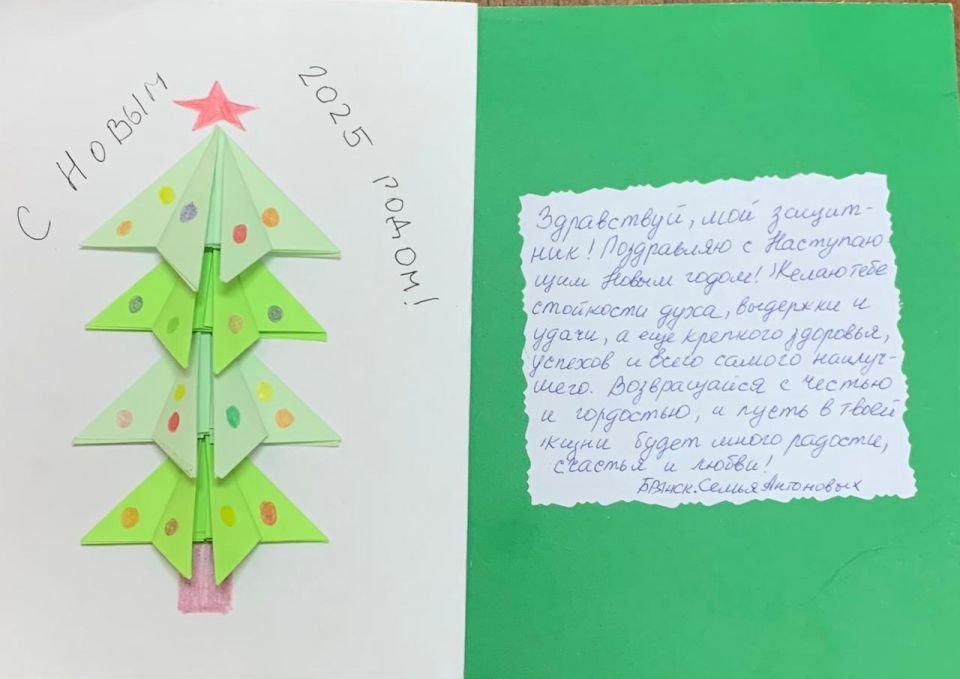 С НОВЫМ
2025
годом!
Здравствуй, мой защит-
ник! Поздравляю с Наступаю
щим Новым годом! Желаю тебе
стойкости духа, выдержки и
удачи, а еще крепкого здоровья,
успехов и всего самого наилуч-
шего. Возвращайся с честью
и гордостью, и пусть в твоей
жизни будет много радости,
счастья и любви!
Брянск. Семья Антоновых